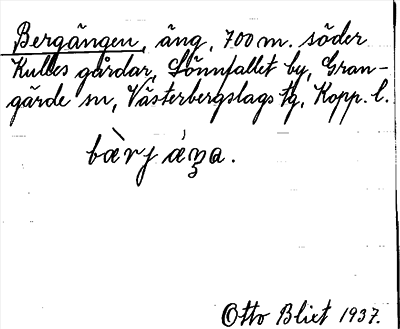 Bergängen, äng, 700 m. söder
Kulles gårdar, Sönnfallet by, Gran-
gärde sn, Västerbergslags tg, Kopp. l.
Otto Blixt 1937.